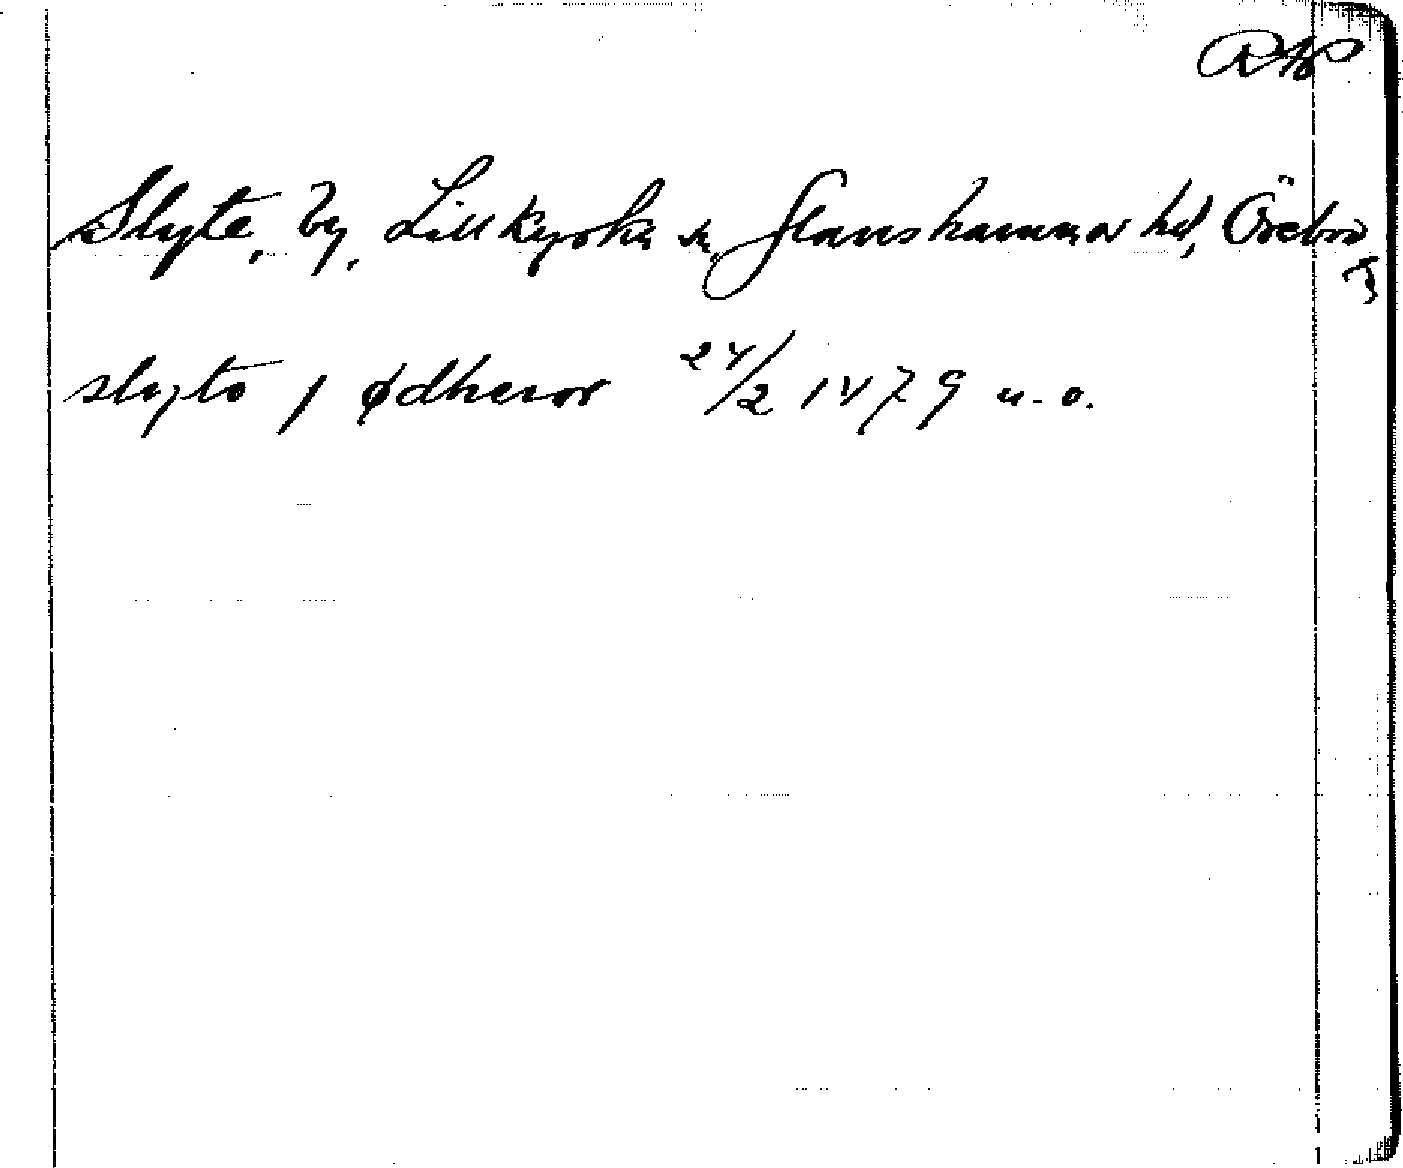 RAP
Slyte, by, Lillkyrka sn, Glanshammar hd, Örebro
l.
slyto j ødheror 24/2 1479 u. o.